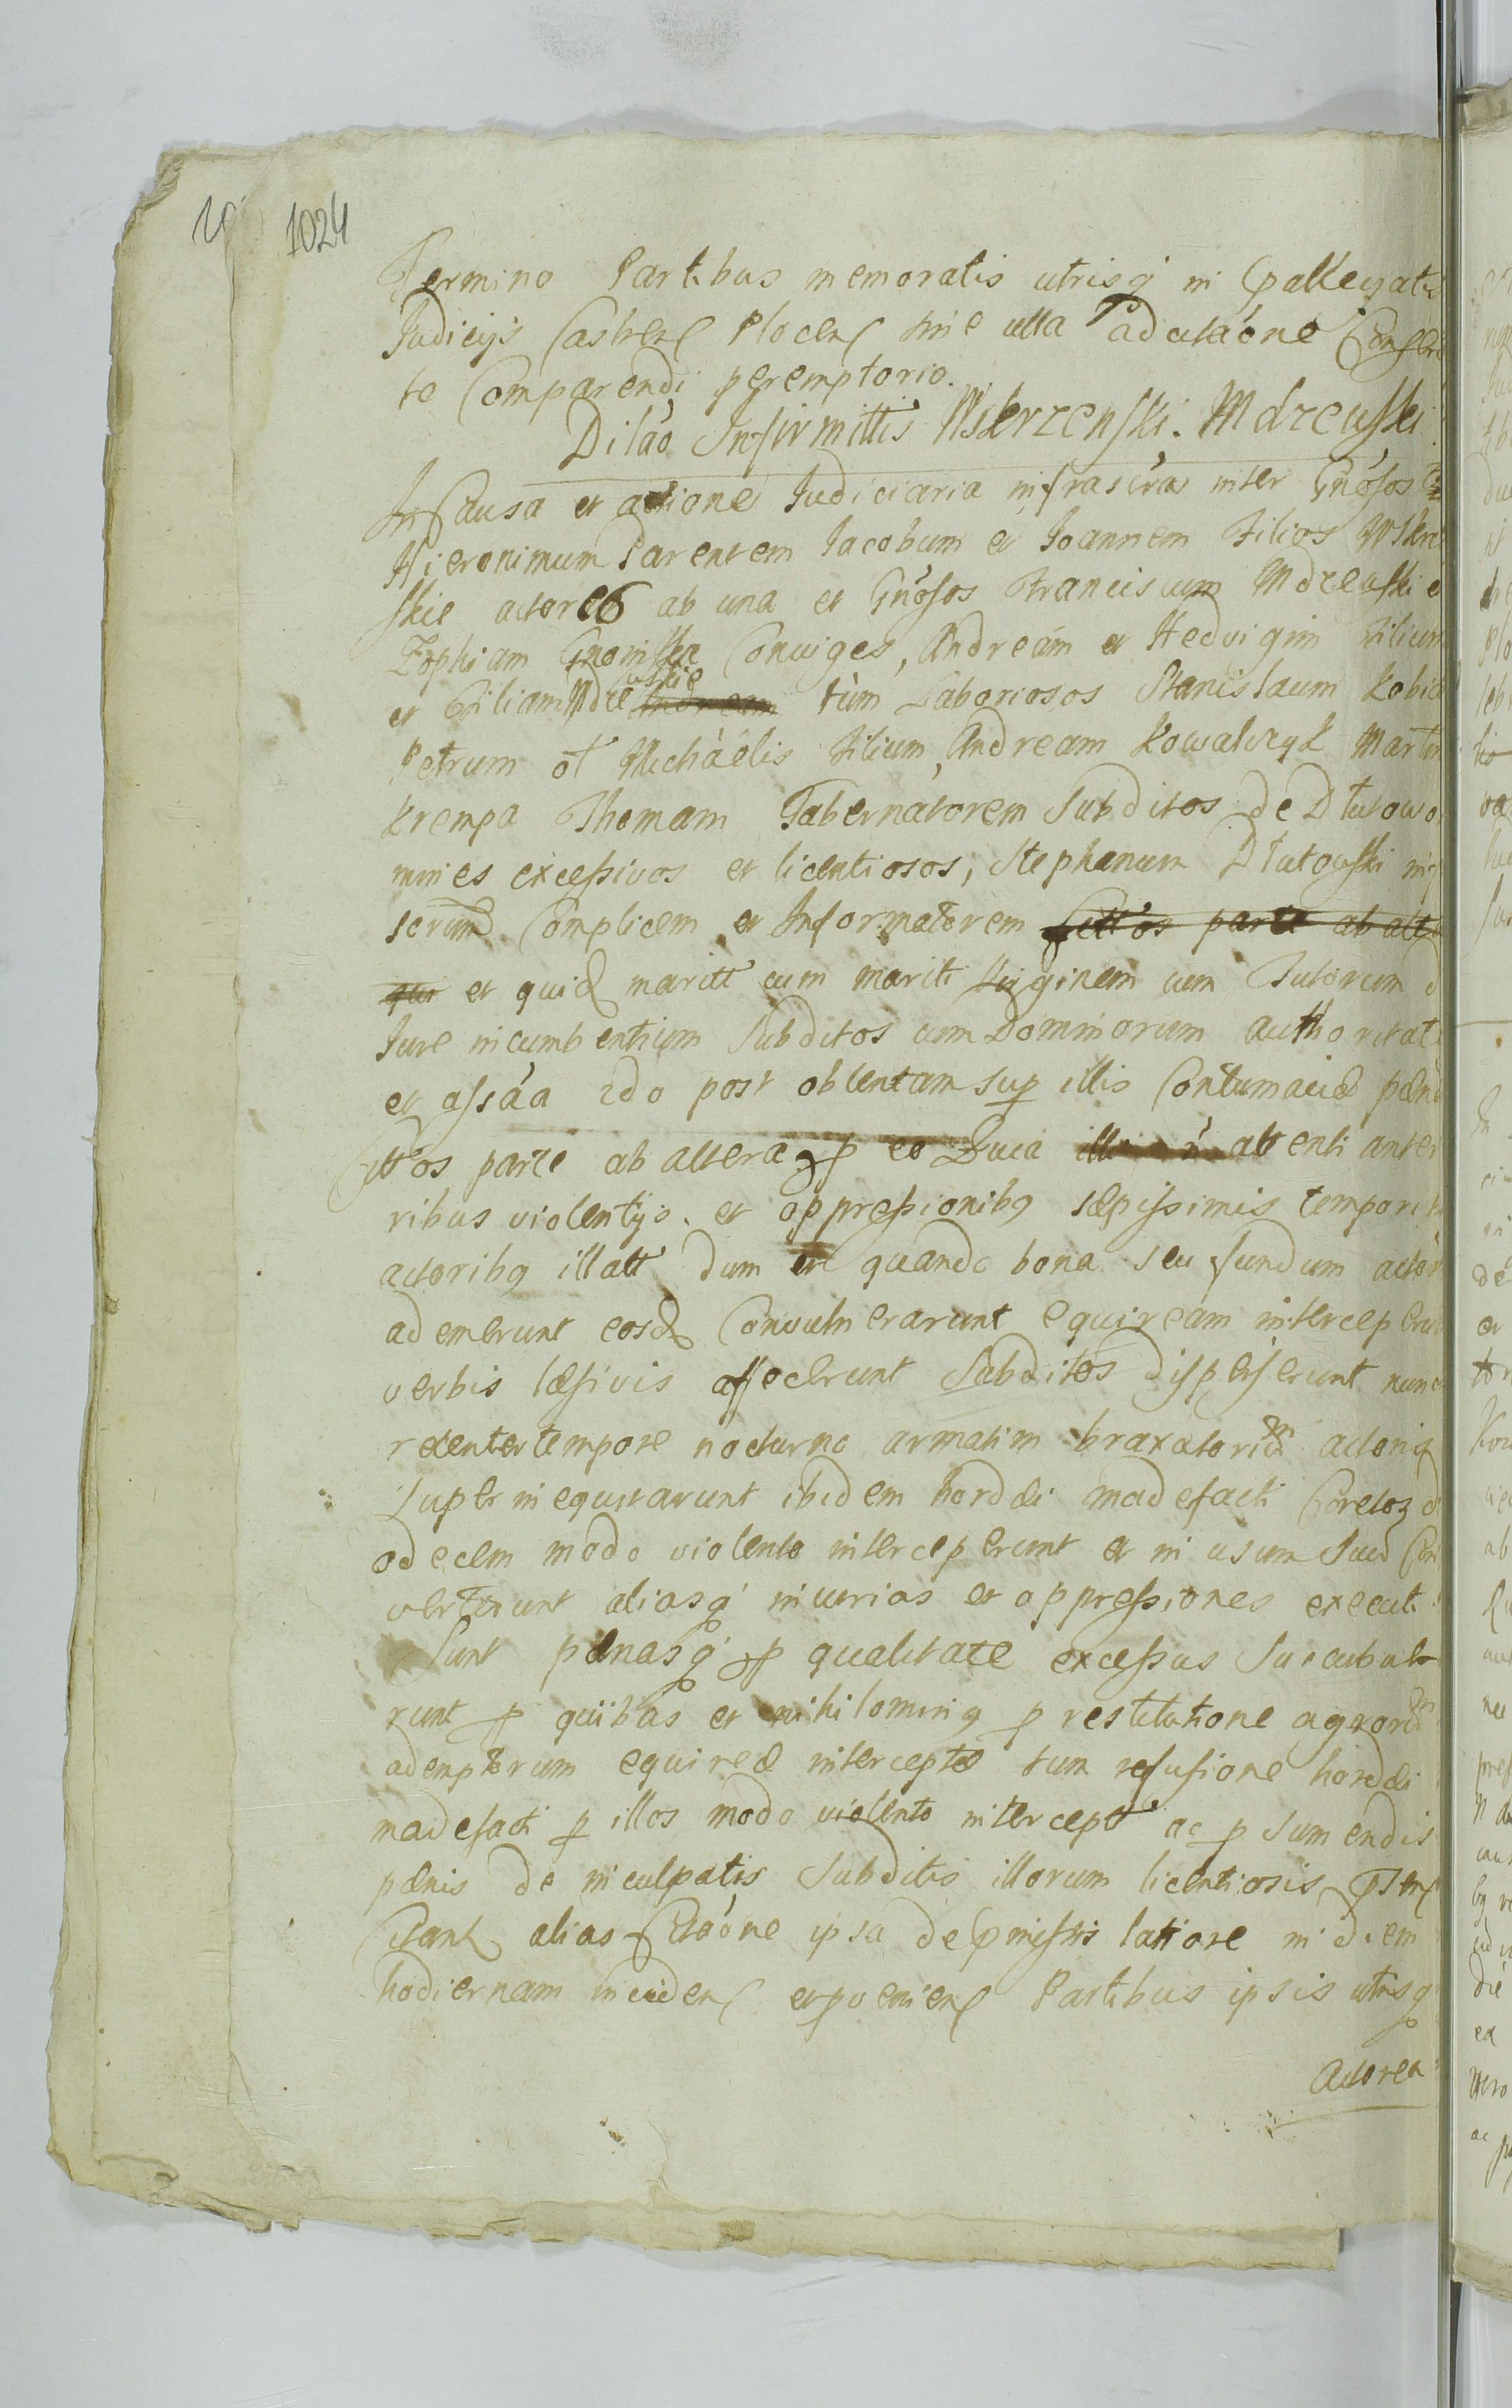 1024
Termino Partibus memoratis utrisq in pallegatis
Judicijs Castren Plocen sine ulla adcitaóne Conser
to Comparendi peremptorio.
Dilaó Infirmittis Wskrzenski. Mdzeuski
In Causa et actione Judiciaria infrascra inter Gnósos
Hieronimum Parentem Jacobum et Joannem Filios Wskrze
skie actores ab una et Gnósos Franciscum Mdzeuski e
Zophiam Conuiges, Andream et Hedvigim Filium
et Filiam Mdzeuskie tùm Laboriosos Stanislaum Kobia
Petrum ot Michaèlis Filium, Andream Kowalczyk Martin
Krempa Thomam Tabernatorem Subditos de Dłutowo
mines excessivos et licentiosos, Stephanum Dłutouski inf
scrum Complicem et Informatorem Cittos parte ab alt
qui et quid maritt cum mariti Virginem cum Tutorum
Jure incumbentium Subditos cum Dominorum authoritate
et assáa 2do post obtentam sup illis Contumaciæ pæn
Cittos parte ab altera p eo Quia attenti anter
ribus violentijs et oppressionibq sæpissimis tempori
actoribq illatt dum et quando bona seu fundum actor
ademerunt eosq Convulnerarunt equiream interceperu
verbis læsivis affecerunt Subditos disperserunt nunc
recenter tempore nocturno armatim braxatorium actoris
super inequitarunt ibidem hordei madefacti Coretoz d
odecem modo violento interceperunt et in usum Suum Con
verterunt aliasq iniurias et oppressiones executi
Sunt pænasq p qualitate excessus Succubue
runt p quibus et nihilominq p restitutione agrorum
ademptorum equireæ interceptæ tum refusione hordei
madefacti p illos modo violento intercept ac p Sumendis
pænis de inculpatis Subditis illorum licentiosis
Citant alias Citaóne ipsa de pmissis latiore in diem
hodiernam inciden et pvenien Partibus ipsis utrisq
Actorea